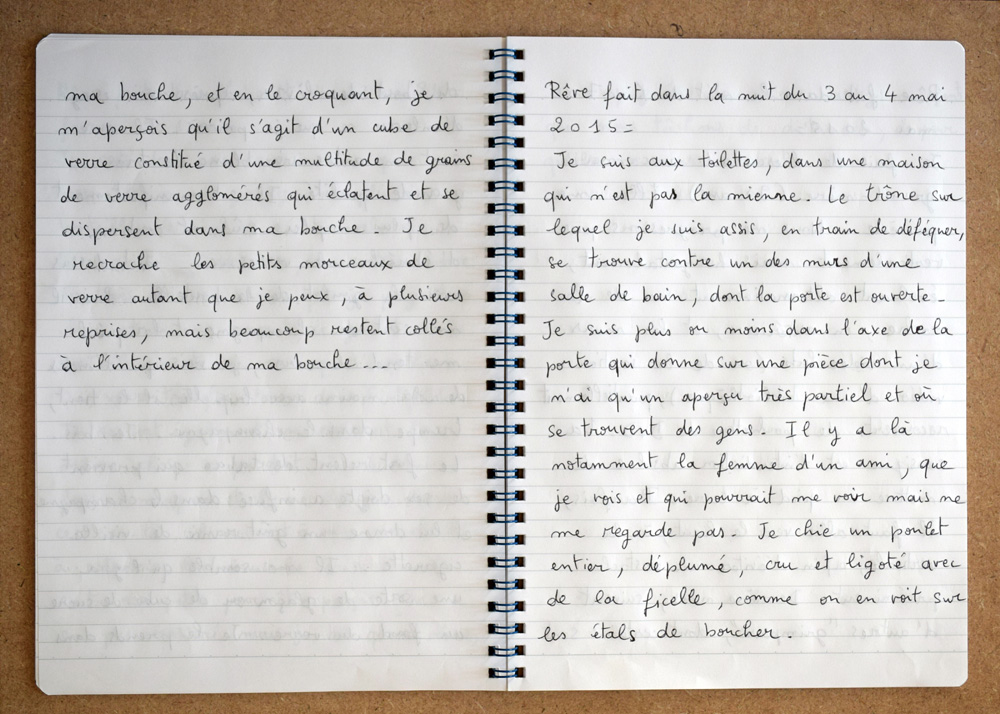 ma bouche, et en le croquant, je
m'aperçois qu'il s'agit d'un cube de
verre constitué d'une multitude de grains
de verre agglomérés qui éclatent et se
dispersent dans ma bouche. Je
recrache les petits morceaux de
verre autant que je peux, à plusieurs
reprises, mais beaucoup restent collés
à l'intérieur de ma bouche...
Rêve fait dans la nuit du 3 au 4 mai
2015 =
Je suis aux toilettes, dans une maison
qui n'est pas la mienne. Le trône sur
lequel je suis assis, en train de déféquer,
se trouve contre un des murs d'une
salle de bain, dont la porte est ouverte.
Je suis plus ou moins dans l'axe de la
porte qui donne sur une pièce dont je
n'ai qu'un aperçu très partiel et où
se trouvent des gens. Il y a là
notamment la femme d'un ami, que
je vois et qui pourrait me voir mais ne
me regarde pas. Je chie un poulet
entier, déplumé, cru et ligoté avec
de la ficelle, comme on en voit sur
les étals de boucher.